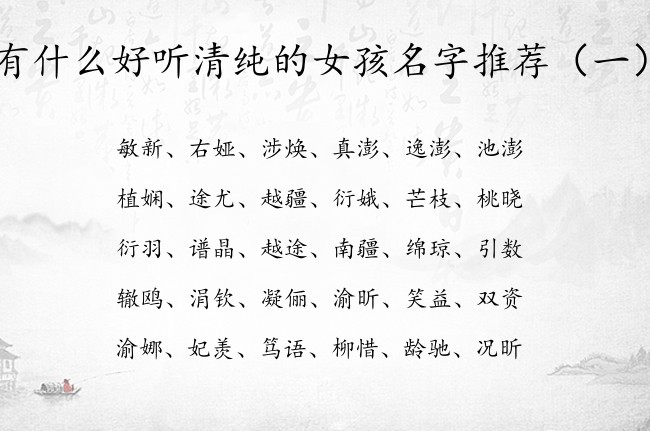 有什么好听清纯的女孩名字推荐（一）
敏新、右娅、涉焕、真澎、逸澎、池澎
植娴、途尤、越疆、衍娥、芒枝、桃晓
衍羽、谱晶、越途、南疆、绵琼、引数
辙鸥、涓钦、凝俪、渝昕、笑益、双资
渝娜、妃羡、笃语、柳惜、龄驰、况昕